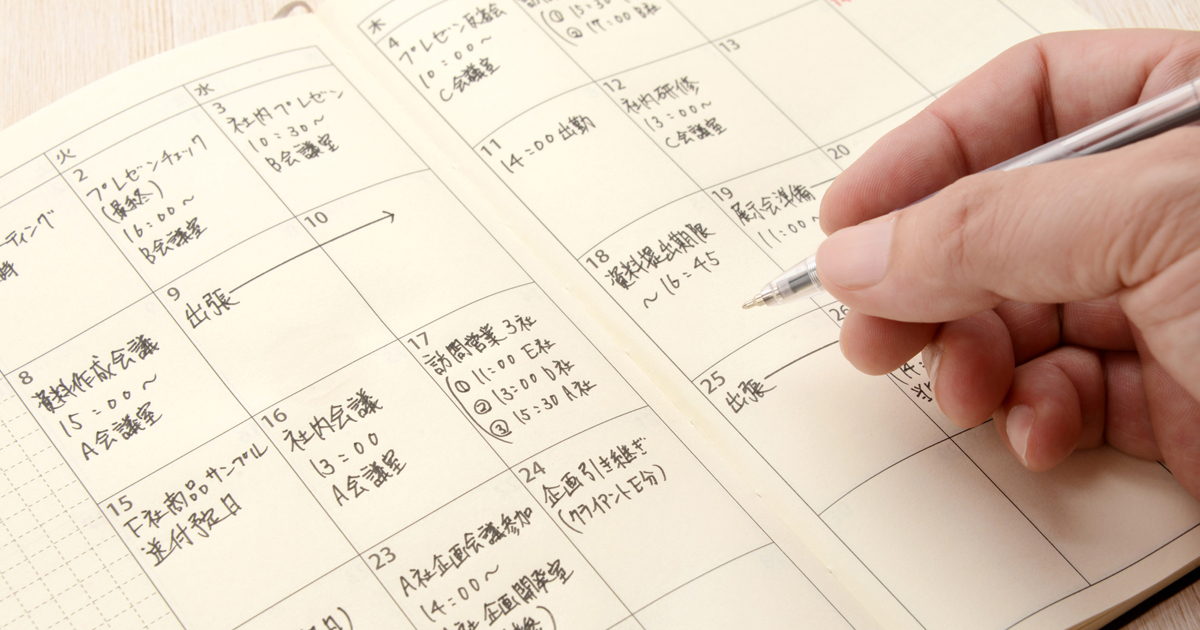 火
水
木
ーティング
2
プレゼンチェック
(最終)
16:00〜
B会議室
3
社内プレゼン
10:30〜
B会議室
4
プレゼン反省会
10:00〜
C会議室
② 17:00 B社
8
資料作成会議
15:00〜
A会議室
9
出張
10
11
14:00 出勤
12
社内研修
13:00〜
C会議室
13
15
F社商品サンプル
送付予定日
16
社内会議
13:00
A会議室
17
訪問営業 3社
① 11:00 E社
② 13:00 b社
③ 15:30 A社
18
資料提出期限
〜16:45
19
展示会準備
11:00〜
20
23
A社企画会議参加
14:00〜
企画開発室
24
企画引き継ぎ
(クライアントE分)
25
出張
26